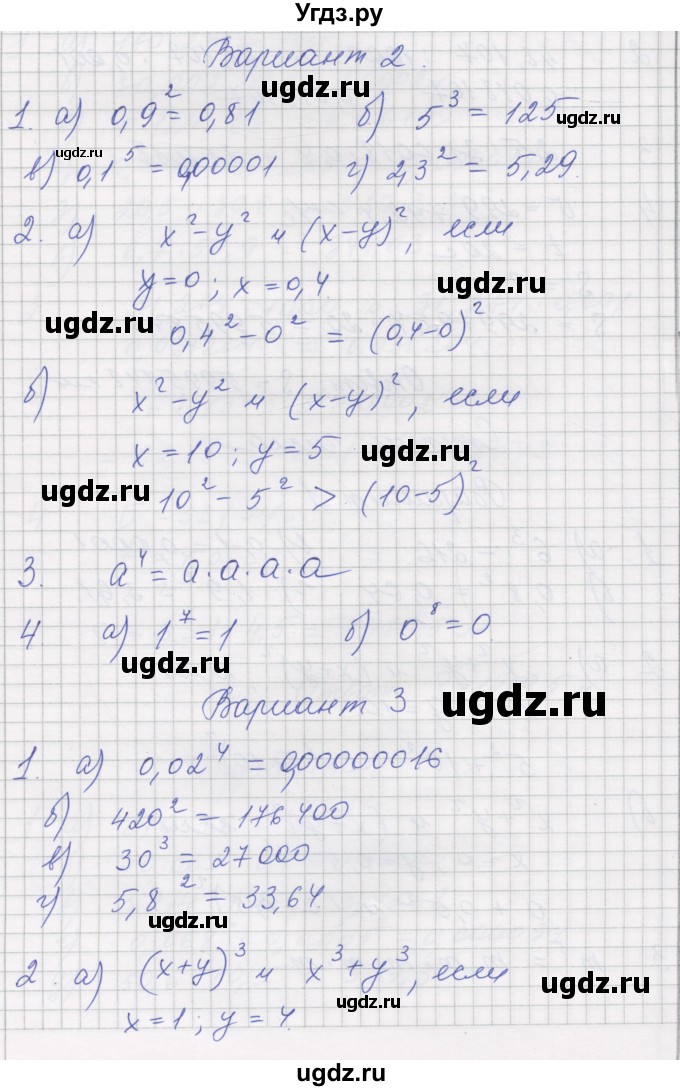 Угдз.ру
Вариант 2.
ugdz.ru
1. а) 0,9² = 0,81 б) 5³ = 125 ugdz.ru
ugdz.ru
в) 0,1⁵ = 0,00001 г) 2,3² = 5,29.
2. а) x² - y² и (x - y)², если
y = 0; x = 0,4. ugdz.ru
ugdz.ru
0,4² - 0² = (0,4 - 0)²
б) x² - y² и (x - y)², если
x = 10; y = 5 ugdz.ru
ugdz.ru 10² - 5² > (10 - 5)²
3. a⁴ = a · a · a · a
4 а) 1⁷ = 1 б) 0⁸ = 0
ugdz.ru
Вариант 3 ugdz.ru
1. а) 0,02⁴ = 0,00000016
б) 420² = 176 400
в) 30³ = 27 000
г) 5,8² = 33,64.
ugdz.ru
2. а) (x + y)³ и x³ + y³, если
ugdz.ru
x = 1; y = 4.
ugdz.ru